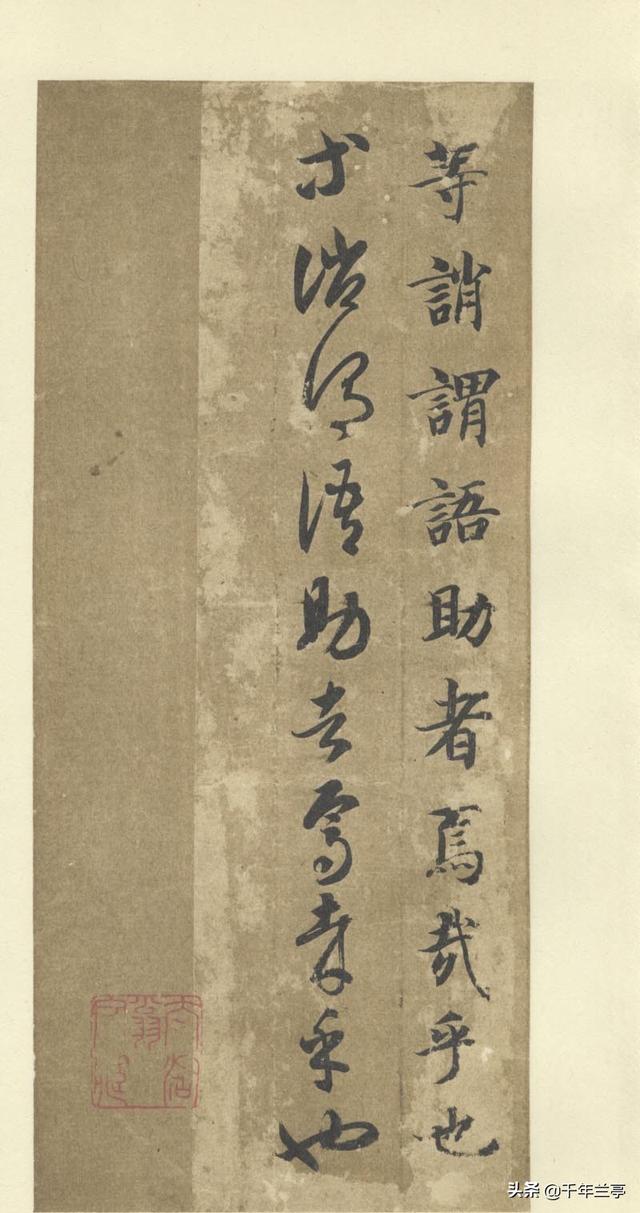 等誚謂語助者焉哉乎也
等誚謂語助者焉哉乎也
头条 @千年兰亭